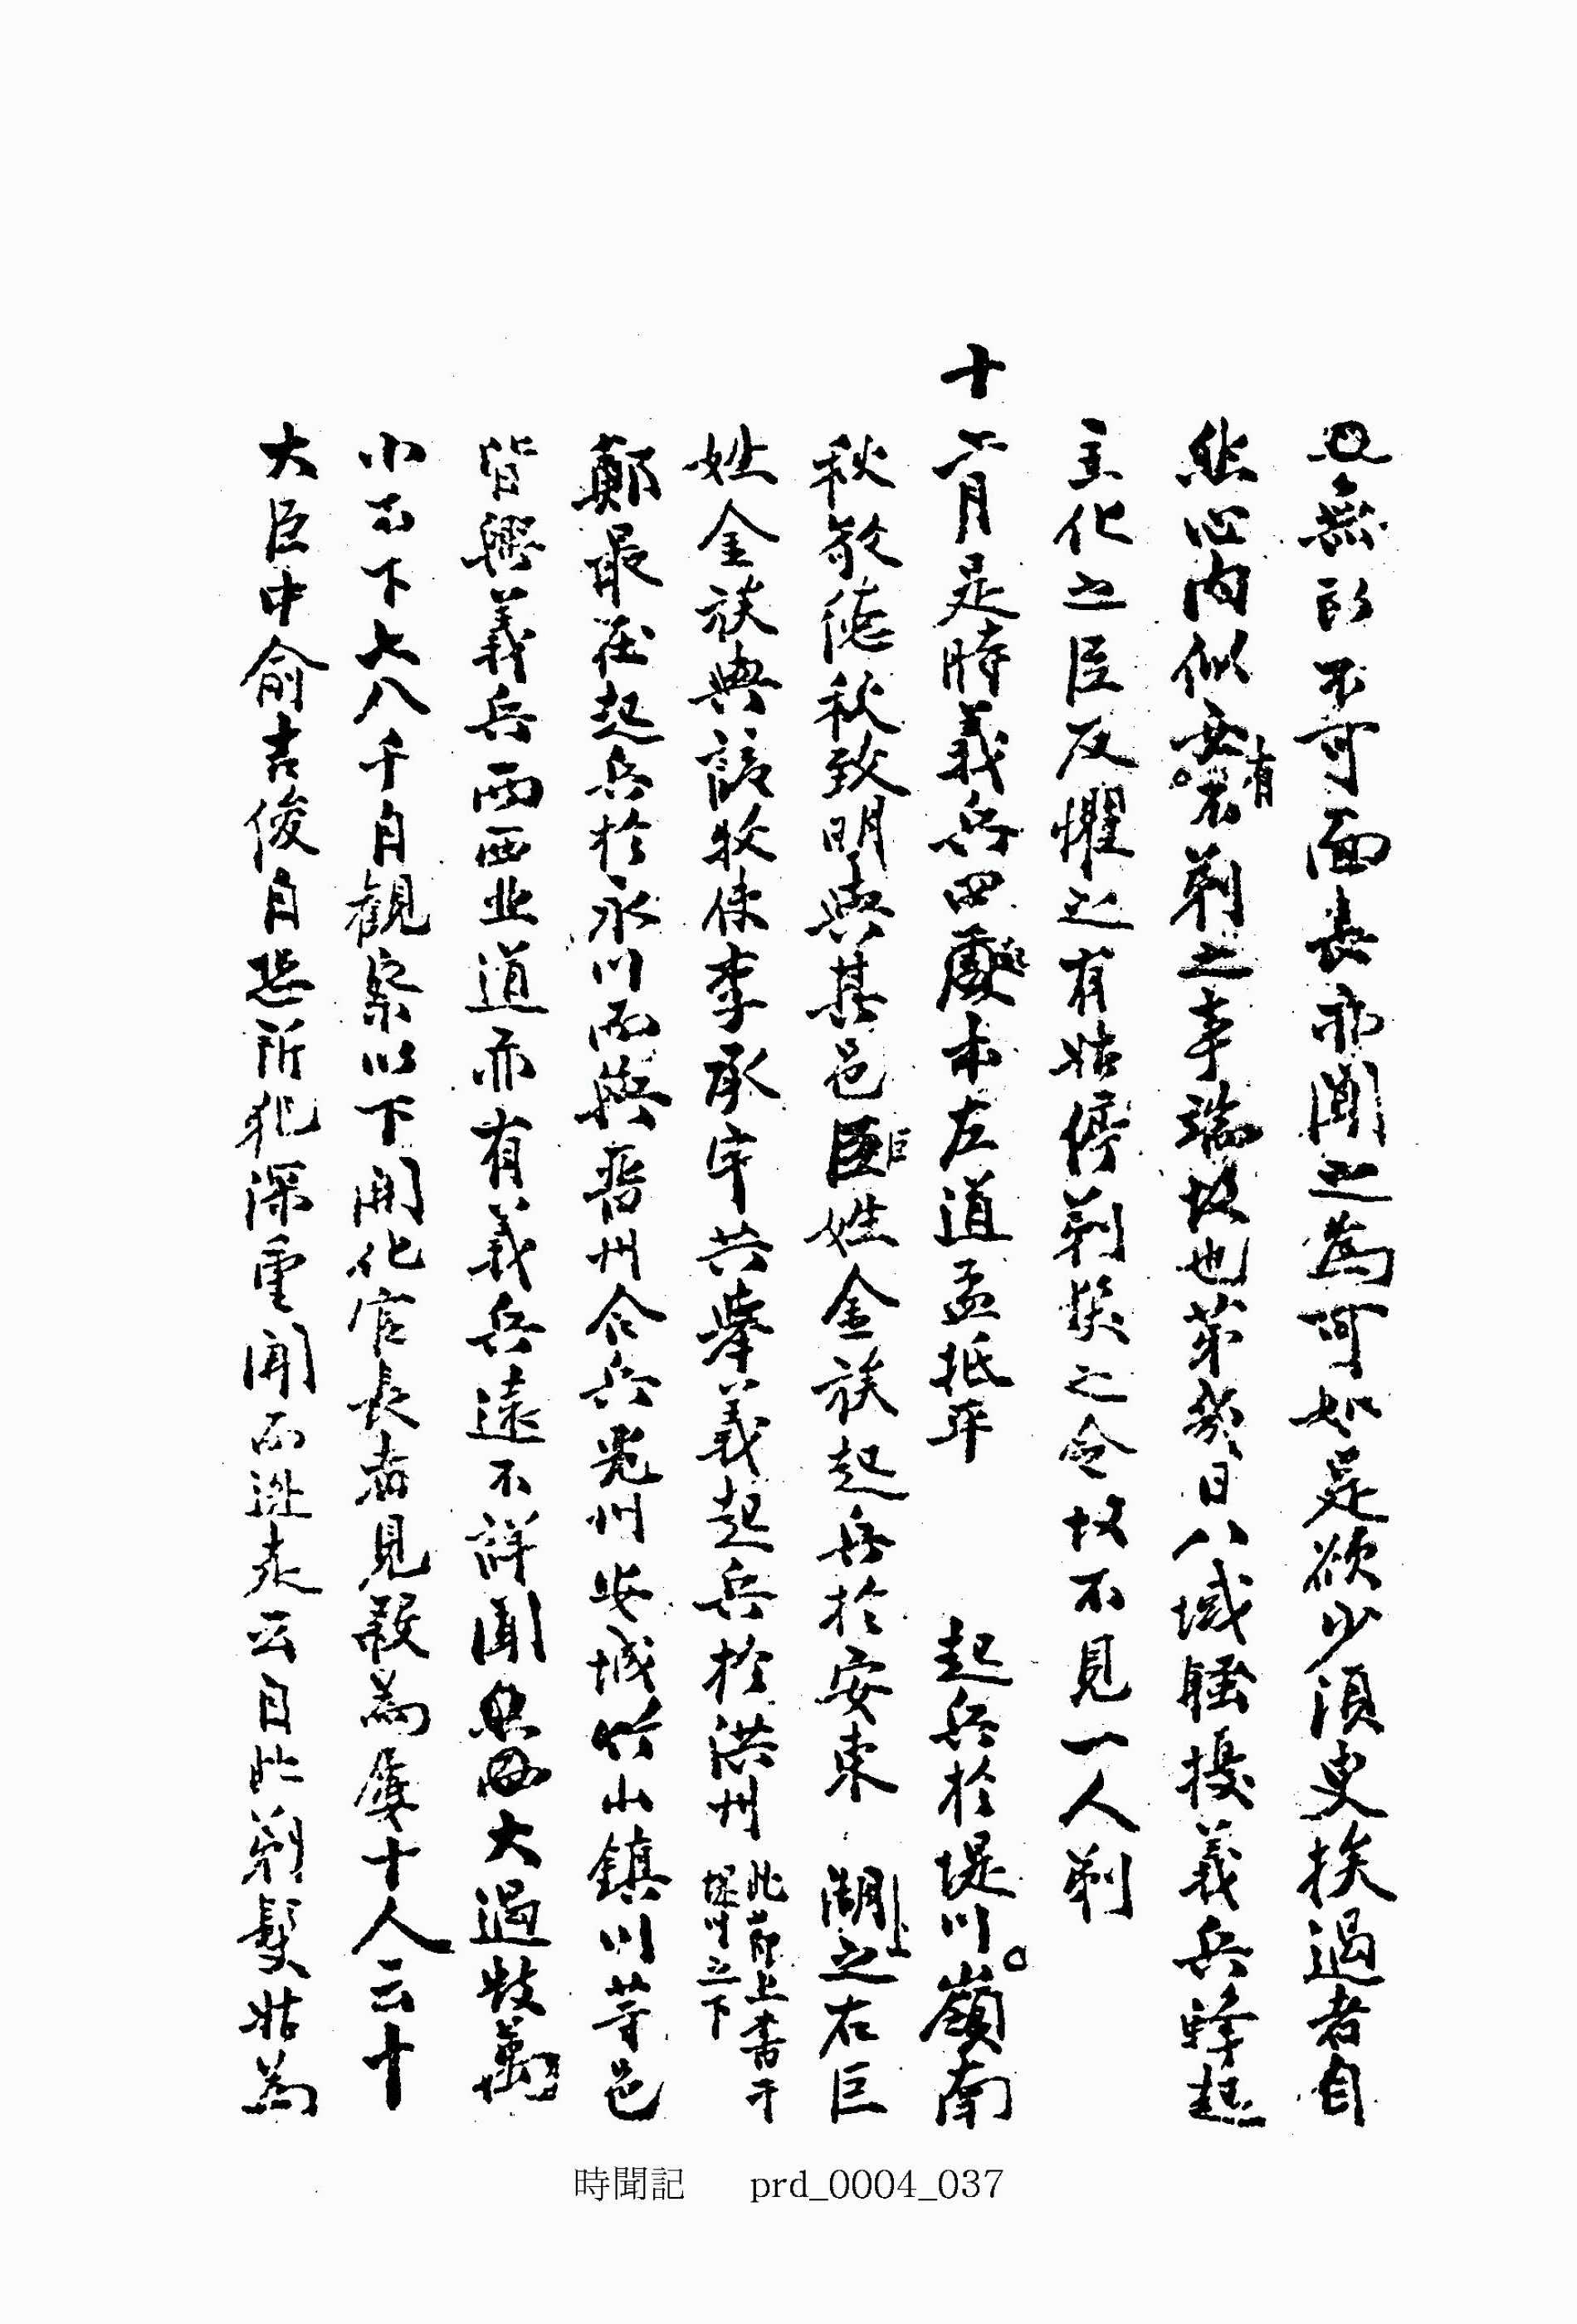 無所不可面長亦聞之爲可如是欲少須臾挨過者自
然心內似無有不剃之事端故也第幾日八域騷擾義兵蜂起
主化之臣反懼之有姑停剃髮之令故不見一人剃
十二月是時義兵四處本左道孟抵平 起兵於堤川嶺南
秋敬德秋致明與其邑巨姓金族起兵於安東 湖之右巨
姓金族與該牧使李承宇共擧義起兵於洪州 此節上書于堤川之下
鄭最在起兵於永川而與晋州合兵光州安城竹山鎭川等邑
皆興義兵兩西北道亦有義兵遠不詳聞 大過數萬
小不下七八千自觀察以下開化官長者見殺爲屢十人云十
大臣中兪吉俊自恐所犯深重聞而逃走云自此剃髮姑爲
時聞記 prd_0004_037